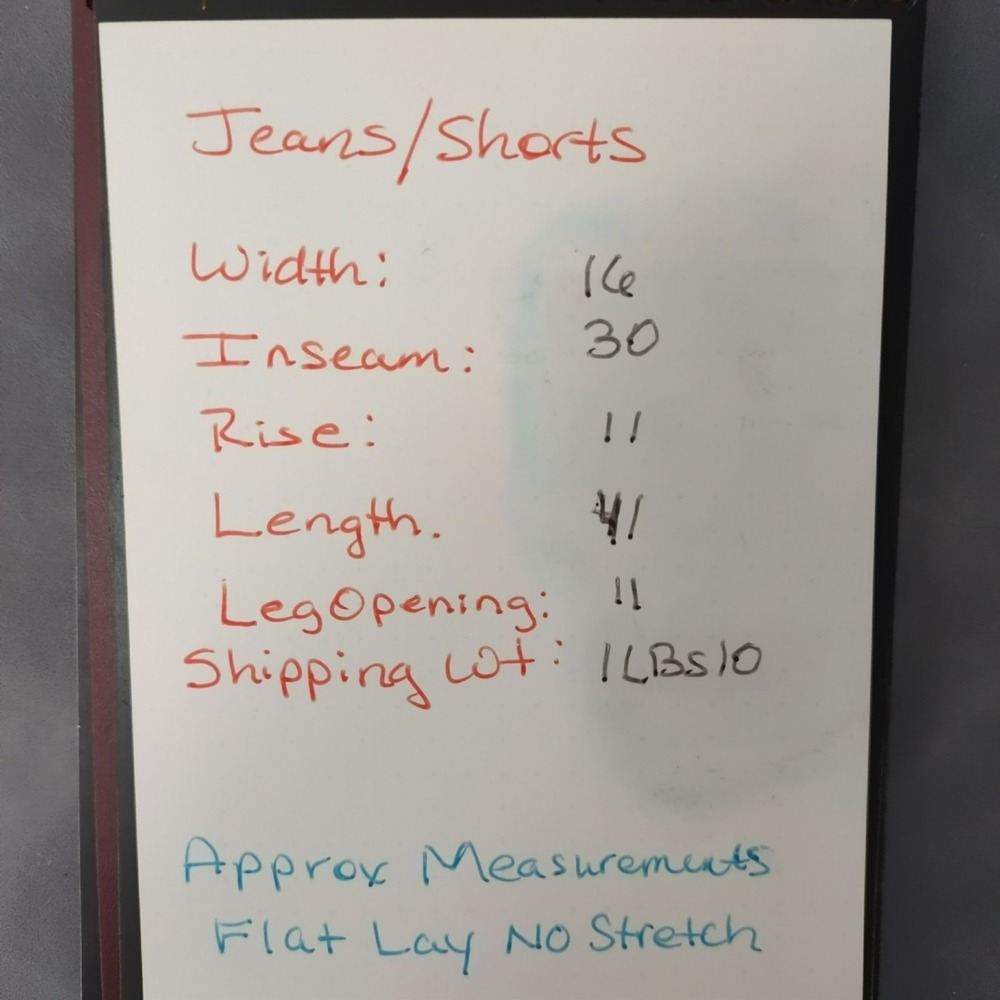 Jeans/Shorts
Width: 16
Inseam: 30
Rise: 11
Length. 41
Leg Opening: 11
Shipping Wt: 1LBS10
Approx Measurements
Flat Lay No Stretch